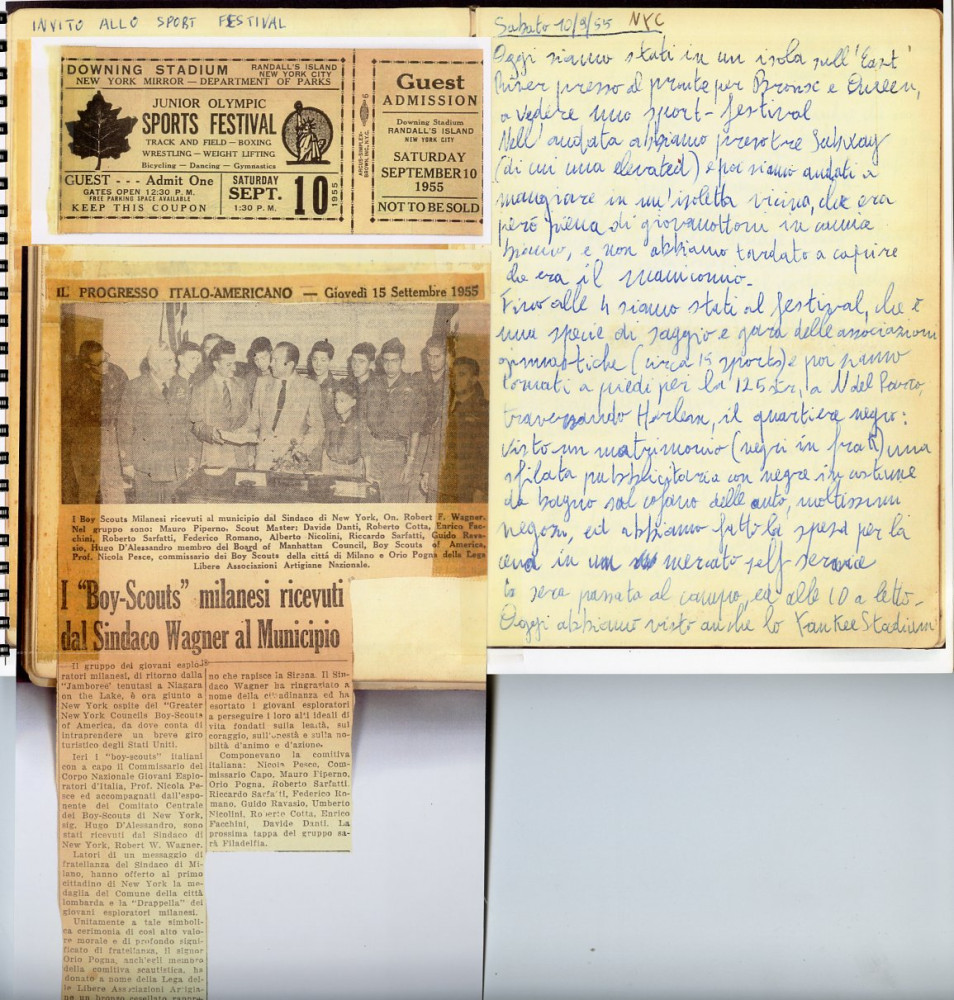 INVITO ALLO SPORT FESTIVAL
DOWNING STADIUM RANDALL'S ISLAND
NEW YORK CITY
NEW YORK MIRROR — DEPARTMENT OF PARKS
JUNIOR OLYMPIC
SPORTS FESTIVAL
TRACK AND FIELD — BOXING
WRESTLING — WEIGHT LIFTING
Bicycling — Dancing — Gymnastics
GUEST - - - Admit One
GATES OPEN 12:30 P. M.
FREE PARKING SPACE AVAILABLE
KEEP THIS COUPON
SATURDAY
SEPT. 10
1:30 P. M.
1955
Guest
ADMISSION
Downing Stadium
RANDALL'S ISLAND
NEW YORK CITY
SATURDAY
SEPTEMBER 10
1955
NOT TO BE SOLD
IL PROGRESSO ITALO-AMERICANO — Giovedì 15 Settembre 1955
I Boy Scouts Milanesi ricevuti al municipio dal Sindaco di New York, On. Robert F. Wagner.
Nel gruppo sono: Mauro Piperno, Scout Master; Davide Danti, Roberto Cotta, Enrico Fac-
chini, Roberto Sarfatti, Federico Romano, Alberto Nicolini, Riccardo Sarfatti, Guido Rava-
sio, Hugo D'Alessandro membro del Board of Manhattan Council, Boy Scouts of America,
Prof. Nicola Pesce, commissario dei Boy Scouts della città di Milano e Orio Pogna della Lega
Libere Associazioni Artigiane Nazionale.
I "Boy-Scouts" milanesi ricevuti
dal Sindaco Wagner al Municipio
Il gruppo dei giovani esplo-
ratori milanesi, di ritorno dalla
"Jamboree" tenutasi a Niagara
on the Lake, è ora giunto a
New York ospite del "Greater
New York Councils Boy-Scouts
of America, da dove conta di
intraprendere un breve giro
turistico degli Stati Uniti.
Ieri i "boy-scouts" italiani
con a capo il Commissario del
Corpo Nazionale Giovani Esplo-
ratori d'Italia, Prof. Nicola Pe-
sce ed accompagnati dall'espo-
nente del Comitato Centrale
dei Boy-Scouts di New York,
sig. Hugo D'Alessandro, sono
stati ricevuti dal Sindaco di
New York, Robert W. Wagner.
Latori di un messaggio di
fratellanza del Sindaco di Mi-
lano, hanno offerto al primo
cittadino di New York la me-
daglia del Comune della città
lombarda e la "Drappella" dei
giovani esploratori milanesi.
Unitamente a tale simboli-
ca cerimonia di così alto valo-
re morale e di profondo signi-
ficato di fratellanza, il signor
Orio Pogna, anch'egli membro
della comitiva scautistica, ha
donato a nome della Lega del-
le Libere Associazioni Artigia-
ne un bronzo cesellato
no che rapisce la Sirena. Il Sin-
daco Wagner ha ringraziato a
nome della cittadinanza ed ha
esortato i giovani esploratori
a perseguire i loro alti ideali di
vita fondati sulla lealtà, sul
coraggio, sull'onestà e sulla no-
biltà d'animo e d'azione.
Componevano la comitiva
italiana: Nicola Pesce, Com-
missario Capo, Mauro Piperno,
Orio Pogna, Roberto Sarfatti,
Riccardo Sarfatti, Federico Ro-
mano, Guido Ravasio, Umberto
Nicolini, Roberto Cotta, Enrico
Facchini, Davide Danti. La
prossima tappa del gruppo sa-
rà Filadelfia.
Sabato 10/9/55 NYC
Oggi siamo stati in un isola sull'East
River presso il ponte per Bronx e Queen,
a vedere uno sport-festival
Nell'andata abbiamo preso tre Subway
(di cui una elevated) e poi siamo andati a
mangiare in un'isoletta vicina, che era
però piena di giovanottoni in camicia
bianca, e non abbiamo tardato a capire
che era il manicomio.
Fino alle 4 siamo stati al festival, che è
una specie di saggio e gara delle associazioni
ginnastiche (circa 15 sports) e poi siamo
tornati a piedi per la 125 str, a N del Parco,
traversando Harlem, il quartiere negro:
visto un matrimonio (negri in frak) una
sfilata pubblicitaria con negre in costume
da bagno sul cofano delle auto, moltissimi
negozi, ed abbiamo fatto la spesa per la
cena in un mercato self service
la sera passata al campo, ed alle 10 a letto.
Oggi abbiamo visto anche lo Yankee Stadium